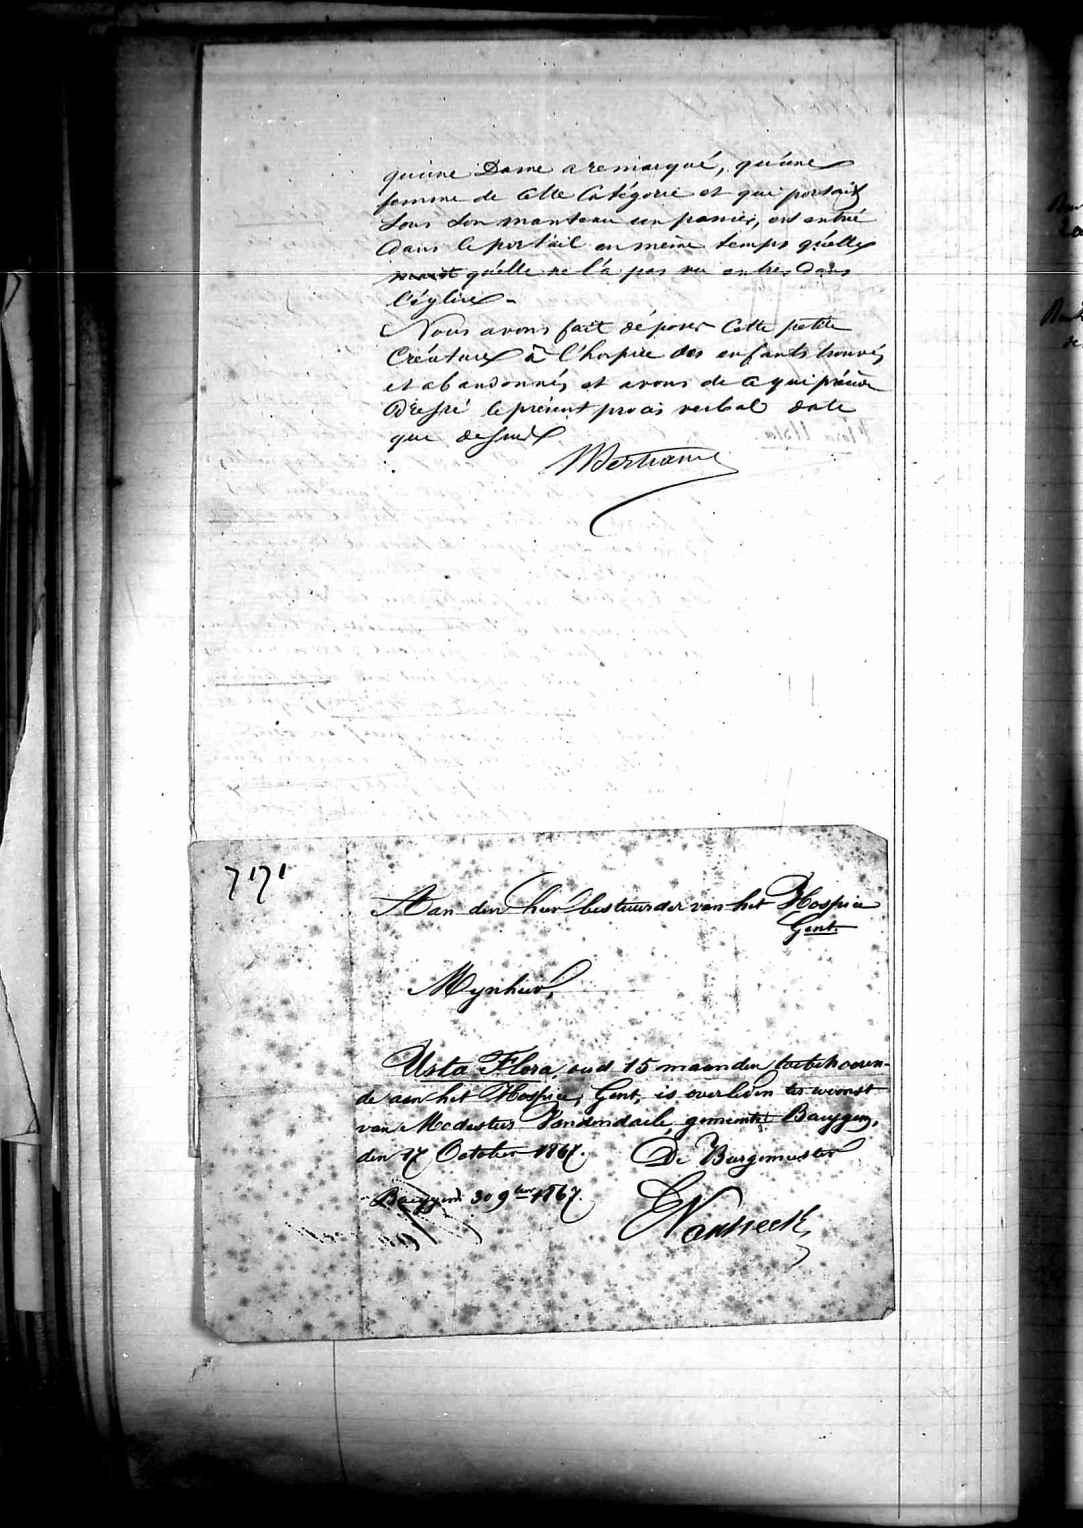 qu'une Dame a remarqué, qu'une
femme de cette Catégorie et qui portait
sous son manteau un panier, est entré
dans le portail en meme temps qu'elle
qu'elle ne l'a pas vu entrer dans
l'église -
Nous avons fait déposer cette petite
Créature à l'hospice des enfants trouvés
et abandonnés, et avons de ce qui précède
Dressé le présent procès verbal date
que dessus
Flora Usta.
7171
Aan den heer bestuurder van het Hospice
Gent.
Mynheer,
Usta Flora, oud 15 maanden toebehooren-
de aan het Hospice, Gent, is overleden ter woonst
van Modestus Vandendaele, gemeente Baeygem,
den 17 October 1867. De Burgemeester
Baeygem 30 9ber 1867.